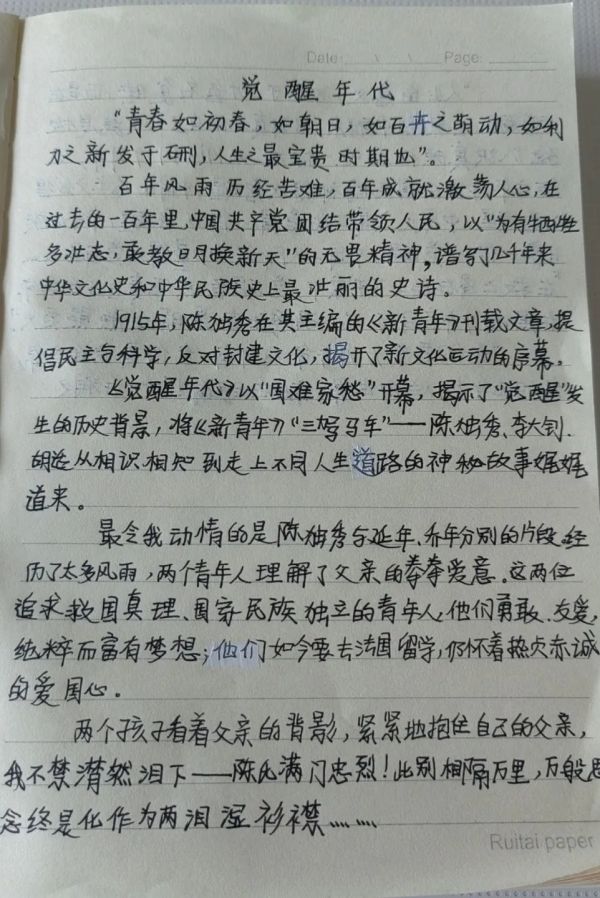 Date: \ \ Page:
觉醒年代
"青春如初春,如朝日,如百卉之萌动,如利
刀之新发于硎,人生之最宝贵时期也"。
百年风雨历经苦难,百年成就激荡人心,在
过去的一百年里,中国共产党团结带领人民,以"为有牺牲
多壮志,敢教日月换新天"的无畏精神,谱写几千年来
中华文化史和中华民族史上最壮丽的史诗。
1915年,陈独秀在其主编的《新青年》刊载文章,提
倡民主与科学,反对封建文化,揭开了新文化运动的序幕。
《觉醒年代》以"国难家愁"开幕,揭示了"觉醒"发
生的历史背景,将《新青年》"三驾马车"——陈独秀、李大钊、
胡适从相识相知到走上不同人生道路的神秘故事娓娓
道来。
最令我动情的是陈独秀与延年、乔年分别的片段,经
历了太多风雨,两个青年人理解了父亲的拳拳爱意。这两位
追求救国真理、国家民族独立的青年人,他们勇敢、友爱,
纯粹而富有梦想;他们如今要去法国留学,仍怀着热贞赤诚
的爱国心。
两个孩子看着父亲的背影,紧紧地抱住自己的父亲,
我不禁潸然泪下——陈氏满门忠烈!此别相隔万里,万般思
念终是化作为两泪湿衫襟……
Ruitai paper